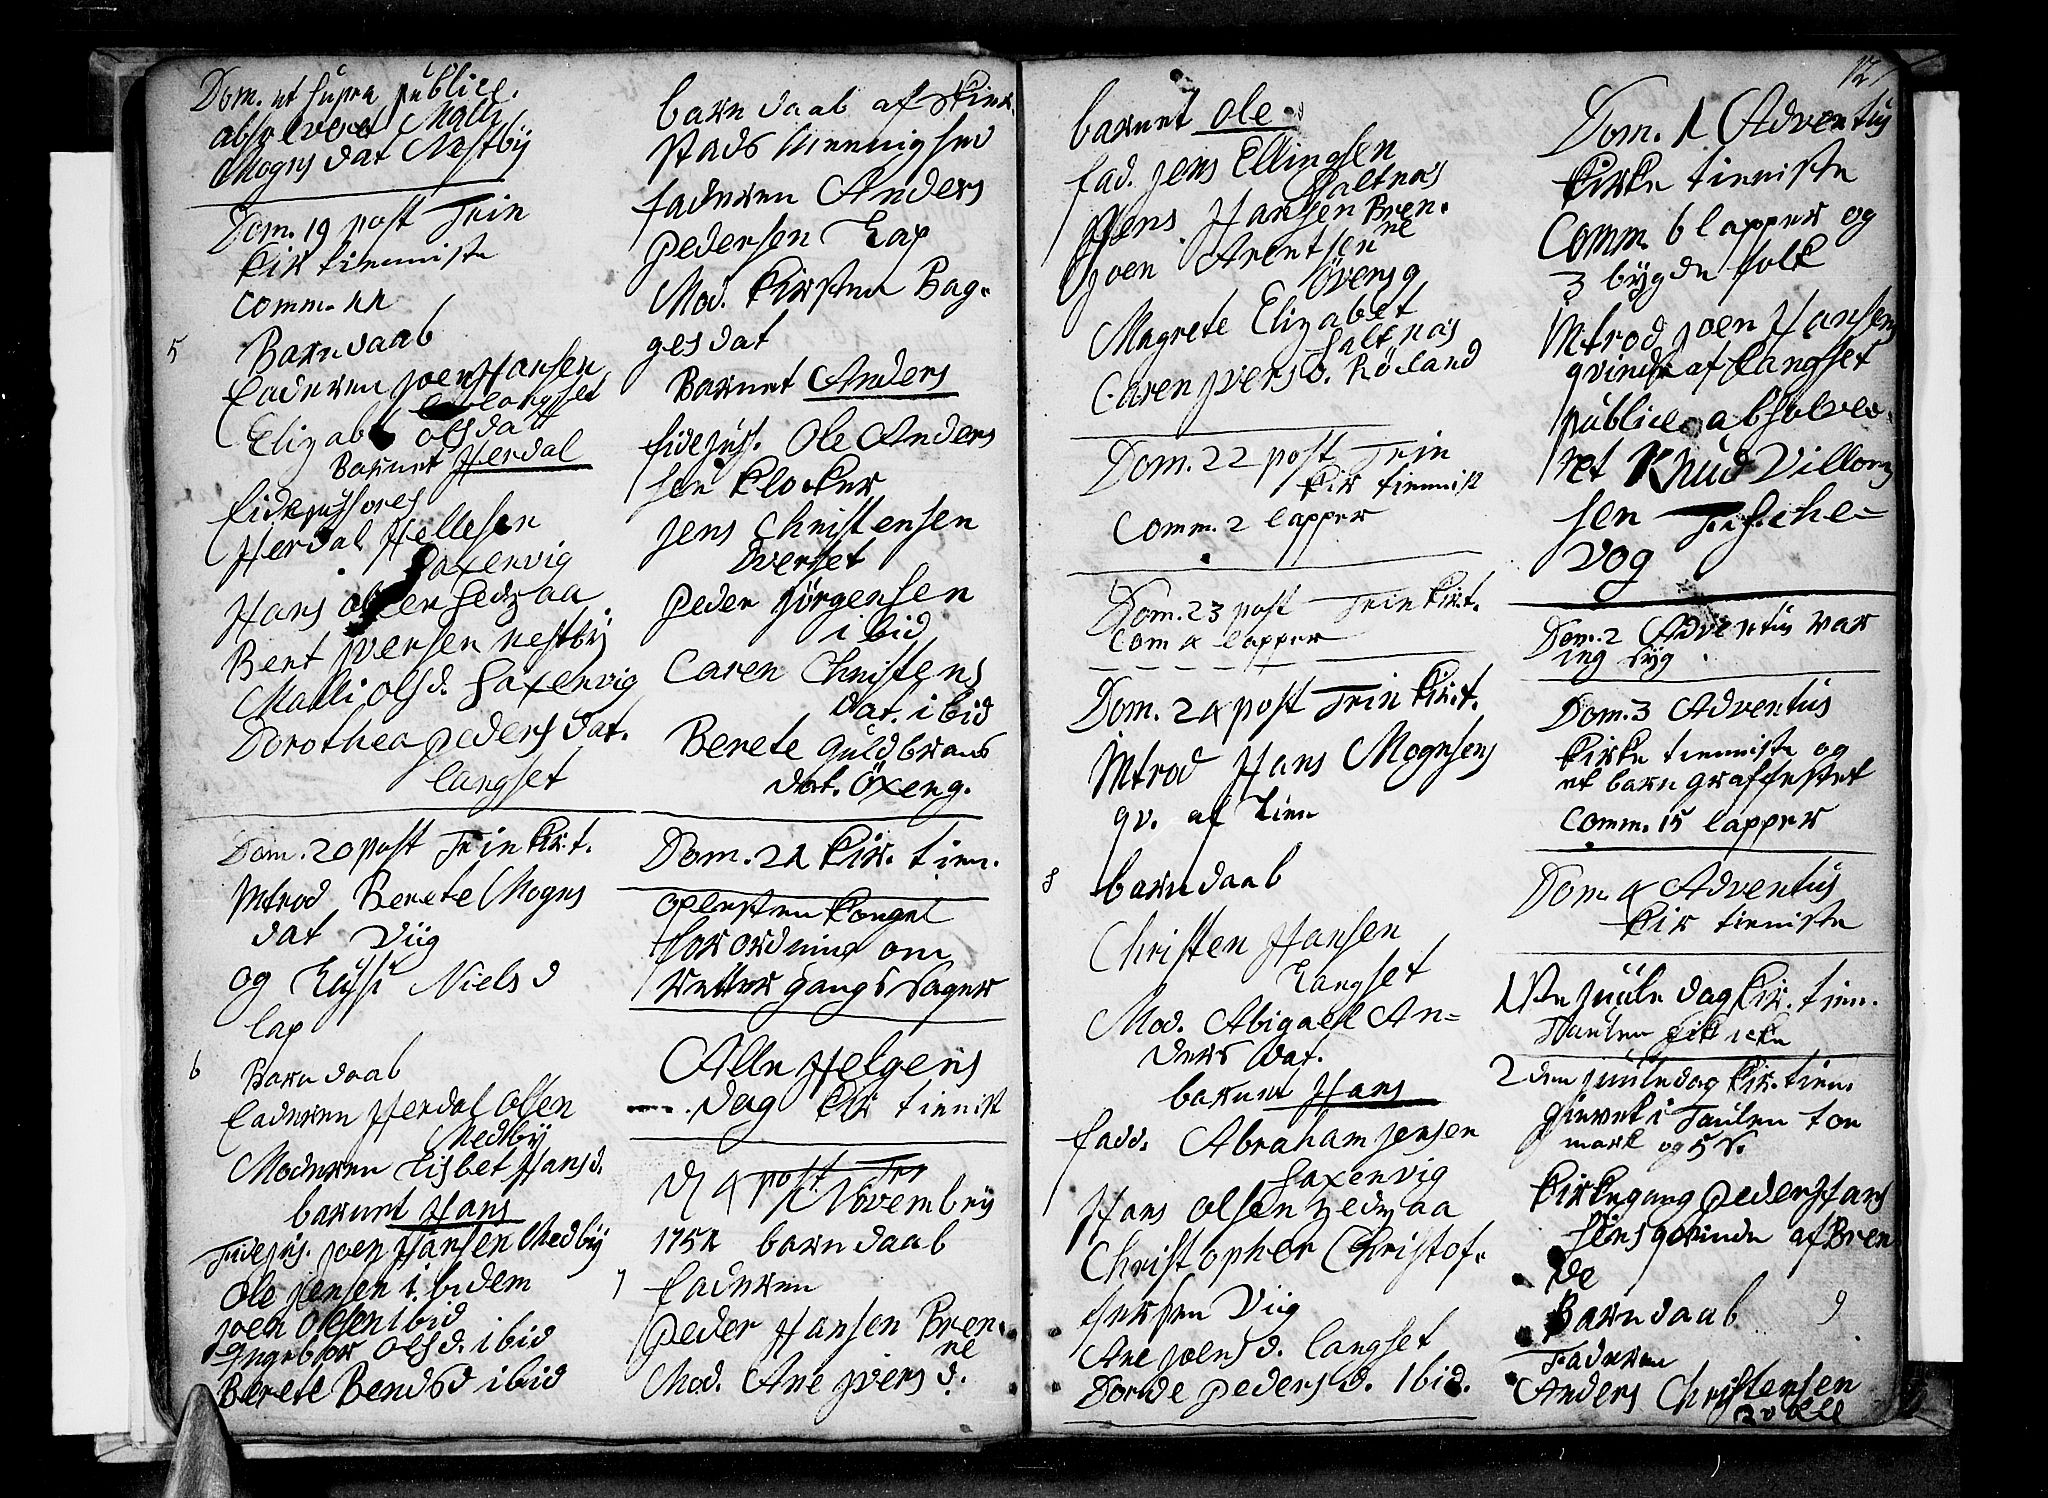 Dom. ut supra publice.
absolveret Malli
Mogns dat Nestbÿ
Dom. 19 post Trin
kir tienniste
comm. 44
5 Barn daab
Faderen Joen Hansen
Langset
Elizab olsdatt
Barnet Herdal
Fidejussores
Herdal Hellesen
Saxenvig
Hans olsen Sedzaa
Bent Jversen nestbÿ
Malli olsd. Saxenvig
Dorothea peders dat.
langset
Dom. 20 post Trin kir. t.
Introd Berete Mogns
dat Viig
og Niels d
lap
6 Barn daab
Faderen Herdal olsen
Medbÿ
Moderen Lisbet Hansd.
barnet Hans
Fidejus. Joen Hansen Medbÿ
Ole Jensen i bidem
joen olsen ibid
Ingebor olsd. ibid
Berete Bendsd ibid
barn daab af Skier
stads Menighed
faderen Anders
pedersen Lap
Mod. Kirsten Bag-
gesdat
Barnet Anders
fidejus. Ole Anders
sen klocker
Jens Christensen
Overset
peder Jörgensen
ibid
Caren Christens
dat. ibid
Berete Guldbrans
dat. Öxeng.
Dom. 21 kir. tien.
oplesten kongel
forordning om
retter gangs sager
Alle Helgens
dag kir tienist
d 4 post Tri
Novembrÿ
1752 barn daab
7 Faderen
peder Hansen Bren-
ne
Mod. Ane Jversd.
barnet Ole
fad. Jens Ellingsen
Saltnæs
Jens Hansen Bren-
ne
Joen Arentsen
Översg
Magrete Elizabet
Saltnæs
Caren Jversd. Röeland
Dom. 22 post Trin
kir tiennist
Comm. 2 lapper
Dom. 23 post Trin kir. t.
Com 4 lapper
Dom. 24 post Trin kir. t.
Introd Hans Mognsens
qv. af Lien
8 barn daab
Christen Hansen
Langset
Mod. Abigaell An=
ders dat.
barnet Hans
fadd. Abraham Jensen
Saxenvig
Hans olsen zedzaa
Christopher Christof-
fersen Viig
Ane Joensd. langset
Dorde pedersd. Ibid.
12
Dom. 1 Adventus
kirke tieniste
Comm. 6 lapper og
3 bÿgde folk
Introd Joen Hansens
qvinde af Langset
publice absolve-
ret Knud Villom
sen Fische=
vog
Dom. 2 Adventus var
ieg syg
Dom. 3 Adventus
kirke tieniste og
et barn graffestet
Comm. 15 lapper
Dom. 4 Adventus
kir tieniste
1ste juule dag kir. tien.
Taulen fik icke
2den juuledag kir. tien.
Givet i Taulen toe
mark og 5 s.
kirkegang peder Hans
sens qvinde af Bren
de
Barn daab 9
Faderen
Anders Christensen